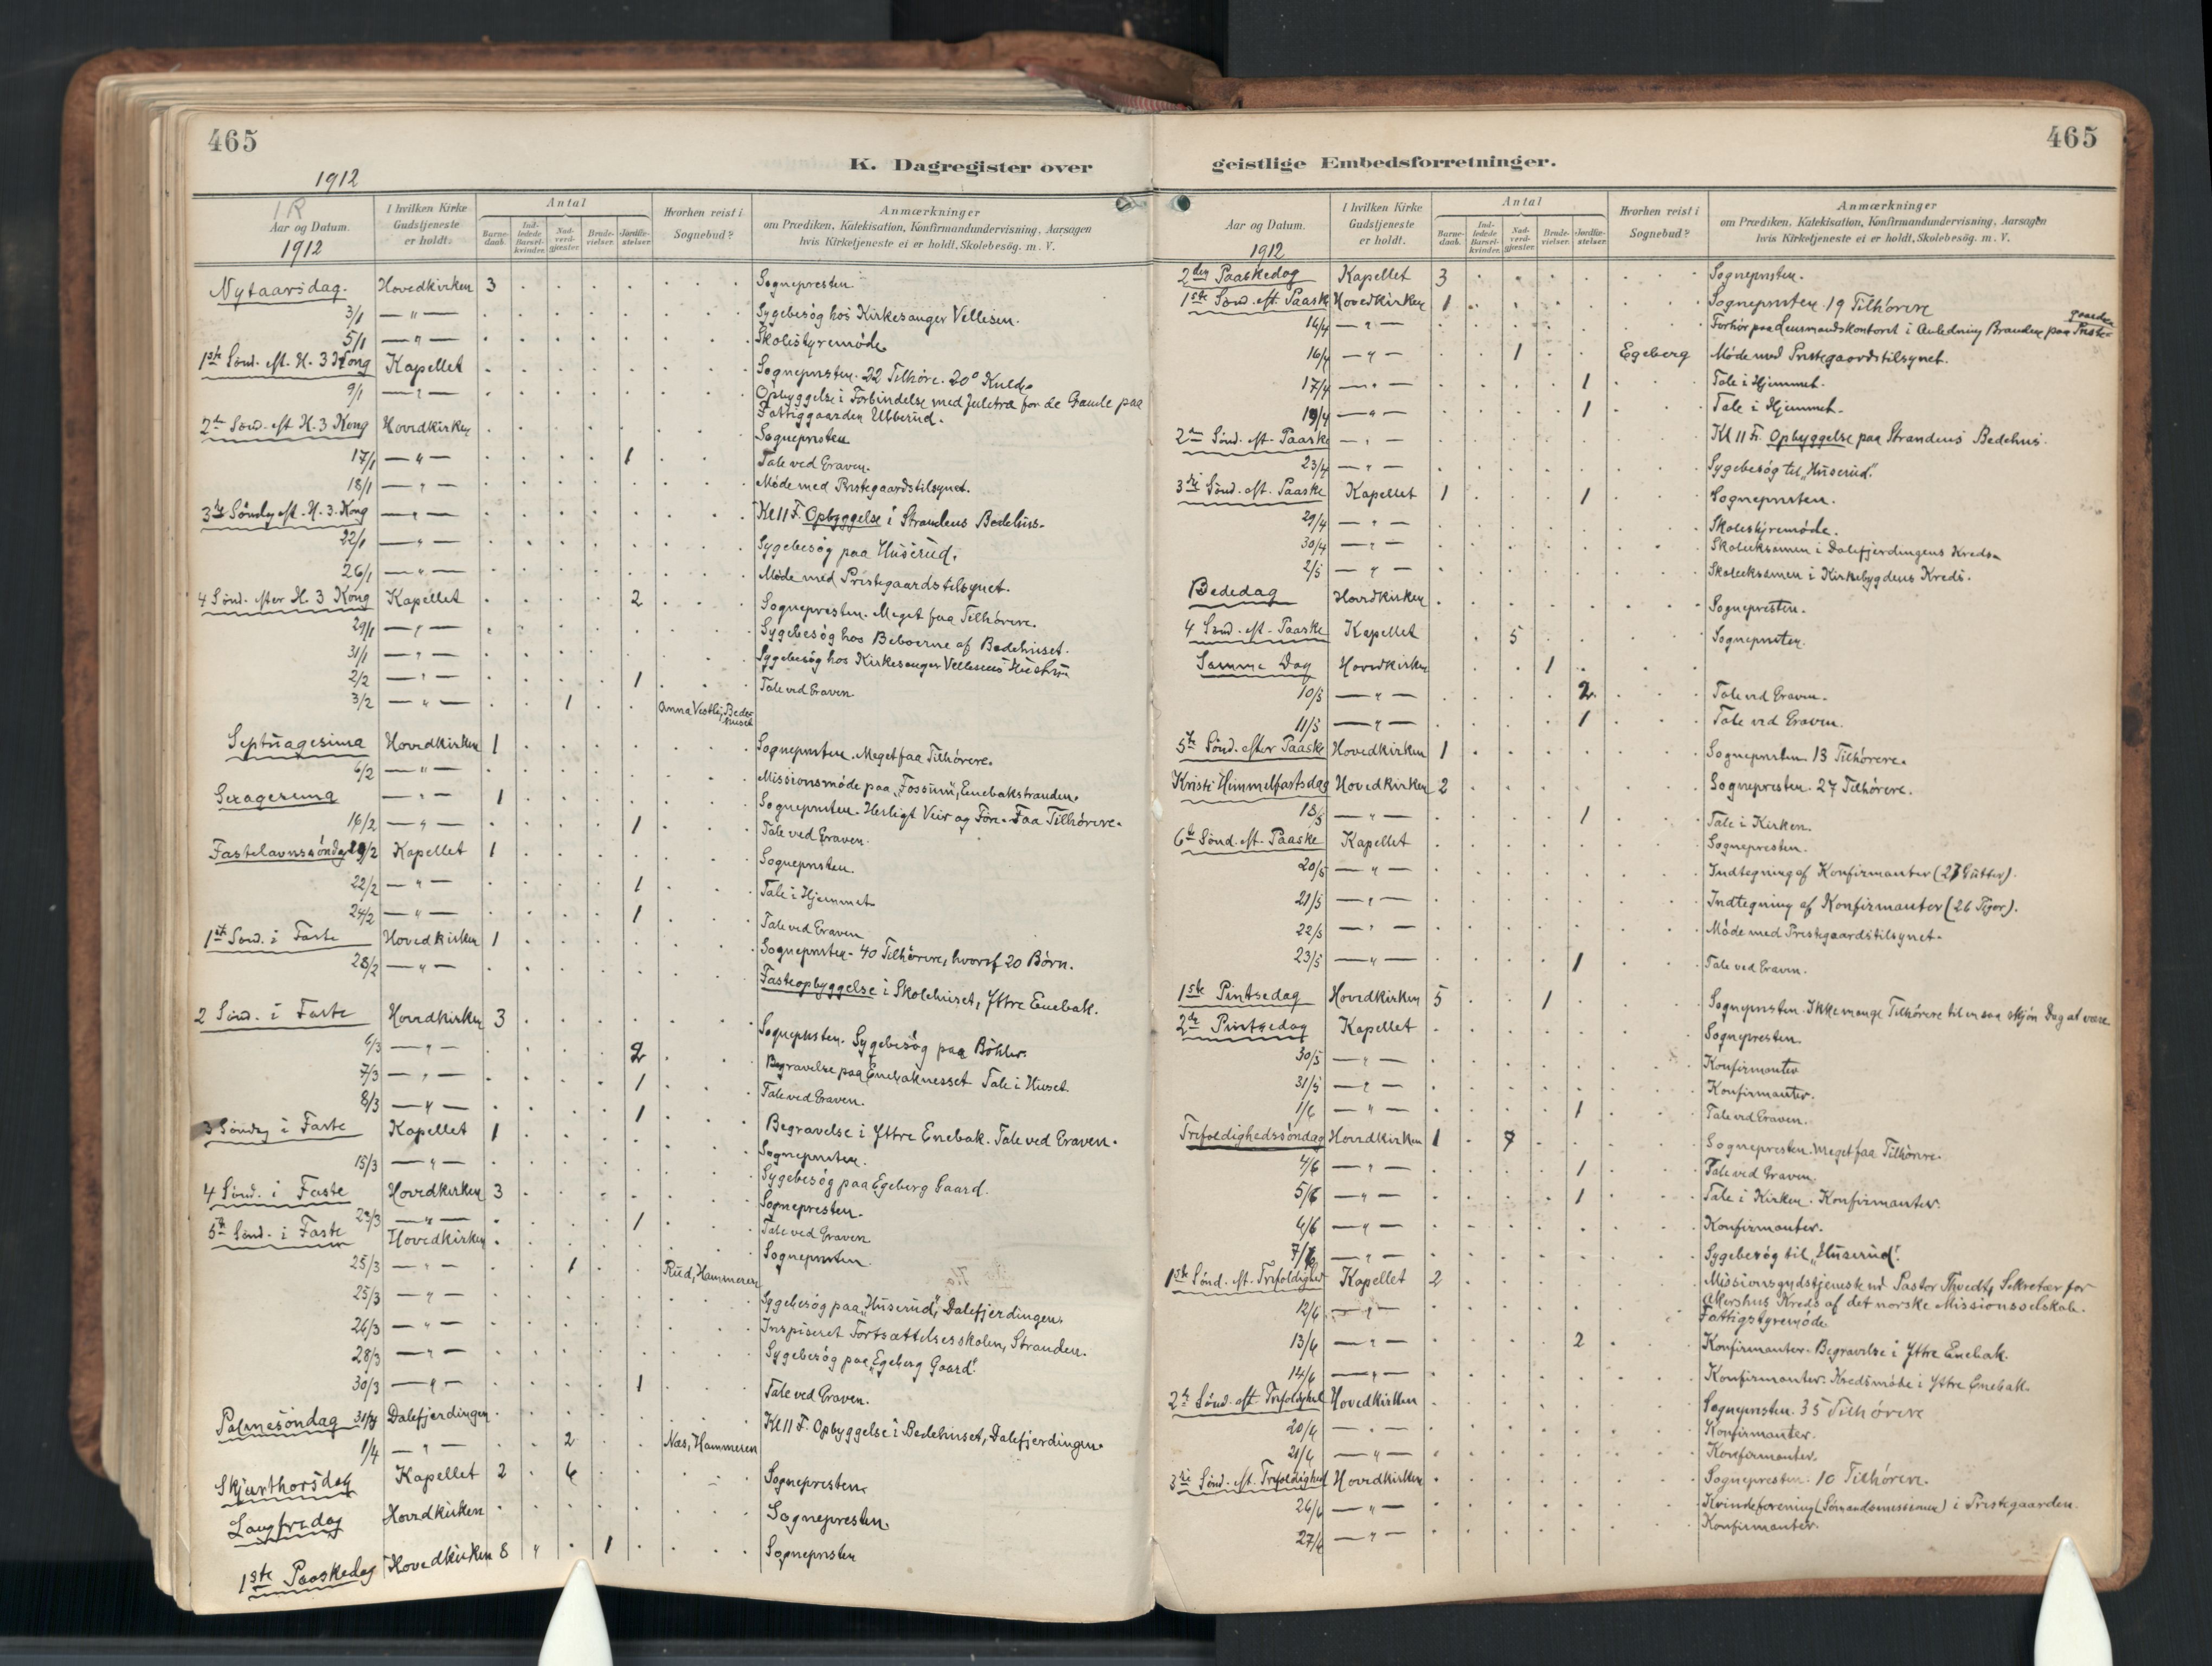 465
1912
K. Dagregister over
1R
Aar og Datum.
1912
I hvilken Kirke Gudstjeneste er holdt.
Antal
Barnedaab. Indledede Barselkvinder. Nadverdgjester. Brudevielser. Jordfæstelser.
Hvorhen reist i Sognebud?
Anmærkninger
om Prædiken, Katekisation, Konfirmandundervisning, Aarsagen
hvis Kirketjeneste ei er holdt, Skolebesög. m. V.
Nytaarsdag. Hovedkirken 3 Sognepresten
3/1 — " — Sygebesög hos Kirkesanger Vellesen.
5/1 — " — Skolestyremöde
1ste Sønd. eft. H. 3 Kong Kapellet Sognepresten. 22 Tilhöre. 20° Kulde
9/1 — " — Opbyggelse i Forbindelse med Juletræ for de Gamle paa
Fattiggaarden Ubberud.
2den Sønd. eft H. 3 Kong Hovedkirken Sognepresten
17/1 — " — 1 Tale ved Graven.
18/1 — " — Möde med Prestegaardstilsynet.
3die Söndag eft. H. 3. Kong — " — Kl 11 F. Opbyggelse i Strandens Bedehus.
22/1 — " — Sygebesög paa Huserud.
26/1 — " — Möde med Prestegaardstilsynet.
4 Sönd. efter H. 3 Kong Kapellet 2 Sognepresten. Meget faa Tilhörere.
29/1 — " — Sygebesög hos Beboerne af Bedehuset.
31/1 — " — Sygebesög hos Kirkesanger Vellesens Hustru
2/2 — " — 1 Tale ved Graven
3/2 — " — 1 Anna Vestli, Bedehuset
Septuagesima Hovedkirken 1 Sognepresten. Meget faa Tilhörere.
6/2 — " — Missionsmöde paa „Fossum", Enebakstranden.
Sexagesima — " — 1 Sognepresten. Herligt Veir og Före. Faa Tilhörere.
16/2 — " — 1 Tale ved Graven.
Fastelavnssöndag /2 Kapellet 1 Sognepresten.
22/2 — " — 1 Tale i Hjemmet
24/2 — " — 1 Tale ved Graven
1ste Sönd. i Faste Hovedkirken 1 Sognepresten. 40 Tilhörere, hvoraf 20 Börn.
28/2 — " — Fasteopbyggelse i Skolehuset, Ytre Enebak.
2 Sönd. i Faste Hovedkirken 3 Sognepresten. Sygebesög paa Böhler.
6/3 — " — 2 Begravelse paa Enebaknesset Tale i Huset
7/3 — " — 1 Tale ved Graven.
8/3 — " — 1 Begravelse i Yttre Enebak. Tale ved Graven.
3 Söndag i Faste Kapellet 1 Sognepresten.
15/3 — " — Sygebesög paa Egeberg Gaard.
4 Sönd. i Faste Hovedkirken 3 Sognepresten.
22/3 — " — 1 Tale ved Graven
5te Sönd. i Faste Hovedkirken Sognepresten
25/3 — " — 1 Rud, Hammeren
25/3 — " — Sygebesög paa „Huserud", Dalefjerdingen.
26/3 — " — Inspiseret Fortsættelsesskolen, Stranden.
28/3 — " — Sygebesög paa „Egeberg Gaard".
30/3 — " — 1 Tale ved Graven.
Palmesöndag 31/3 Dalefjerdingen Kl 11 F. Opbyggelse i Bedehuset, Dalefjerdingen.
1/4 — " — 2 Næs, Hammeren
Skjærthorsdag Kapellet 2 6 Sognepresten
Langfredag Hovedkirken Sognepresten.
1ste Paaskedag Hovedkirken 8 " 1 Sognepresten
465
geistlige Embedsforretninger.
Aar og Datum.
1912
I hvilken Kirke Gudstjeneste er holdt.
Antal
Barnedaab. Indledede Barselkvinder. Nadverdgjester. Brudevielser. Jordfæstelser.
Hvorhen reist i Sognebud?
Anmærkninger
om Prædiken, Katekisation, Konfirmandundervisning, Aarsagen
hvis Kirketjeneste ei er holdt, Skolebesög. m. V.
2den Paaskedag Kapellet 3 Sognepresten.
1ste Sönd. eft. Paaske Hovedkirken 1 Sognepresten. 19 Tilhörere
16/4 — " — Forhör paa Lensmandskontoret i Anledning Branden paa Prestegaarden
16/4 — " — 1 Egeberg Möde med Prestegaardstilsynet.
17/4 — " — 1 Tale i Hjemmet.
19/4 — " — 1 Tale i Hjemmet.
2den Sönd. eft. Paaske — " — Kl 11 F. Opbyggelse paa Strandens Bedehus.
23/4 — " — Sygebesög til „Huserud".
3die Sönd. eft. Paaske Kapellet 1 1 Sognepresten.
29/4 — " — Skolestyremöde.
30/4 — " — Skoleeksamen i Dalefjerdingens Kreds.
2/5 — " — Skoleeksamen i Kirkebygdens Kreds.
Bededag Hovedkirken Sognepresten.
4 Sönd. eft. Paaske Kapellet 5 Sognepresten
Samme Dag Hovedkirken 1
10/5 — " — 2 Tale ved Graven.
11/5 — " — 1 Tale ved Graven.
5te Sönd. efter Paaske Hovedkirken 1 Sognepresten 13 Tilhörere.
Kristi Himmelfartsdag Hovedkirken 2 Sognepresten. 27 Tilhörere.
18/5 — " — 1 Tale i Kirken.
6te Sönd. eft. Paaske Kapellet Sognepresten.
20/5 — " — Indtegning af Konfirmanter (27 Gutter).
21/5 — " — Indtegning af Konfirmanter (26 Piger).
22/5 — " — Möde med Prestegaardstilsynet.
23/5 — " — 1 Tale ved Graven.
1ste Pintsedag Hovedkirken 5 1 Sognepresten. Ikke mange Tilhörere til en saa skjön Dag at være
2den Pintsedag Kapellet Sognepresten.
30/5 — " — Konfirmanter
31/5 — " — Konfirmanter.
1/6 — " — 1 Tale ved Graven.
Trefoldighedssöndag Hovedkirken 1 7 Sognepresten. Meget faa Tilhörere.
4/6 — " — 1 Tale ved Graven.
5/6 — " — 1 Tale i Kirken. Konfirmanter.
6/6 — " — Konfirmanter.
7/6 — " — Sygebesög til „Huserud".
1ste Sönd. eft. Trefoldighed Kapellet 2 Missionsgudstjeneste ved Pastor Thvedt, Sekretær for
Akershus Kreds af det norske Missionsselskab.
12/6 — " — Fattigstyremöde
13/6 — " — 2 Konfirmanter. Begravelse i Yttre Enebak.
14/6 — " — Konfirmanter. Kredsmöde i Yttre Enebak.
2den Sönd. eft Trefoldighed Hovedkirken Sognepresten. 35 Tilhörere
20/6 — " — Konfirmanter.
21/6 — " — Konfirmanter.
3die Sönd. eft. Trefoldighed Hovedkirken Sognepresten. 10 Tilhörere.
26/6 — " — Kvindeforening (Sömandsmissionen) i Prestegaarden.
27/6 — " — Konfirmanter.